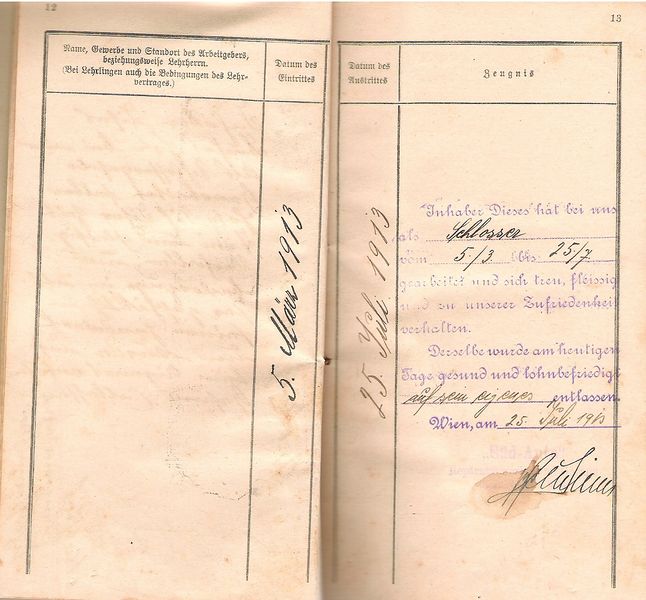 12
Name, Gewerbe und Standort des Arbeitgebers,
beziehungsweise Lehrherrn.
(Bei Lehrlingen auch die Bedingungen des Lehr-
vertrages.)
Datum des
Eintrittes
5. März 1913
13
Datum des
Austrittes
Zeugnis
25. Juli 1913
Inhaber Dieses hat bei uns
als Schlosser
vom 5./3. bis 25./7.
gearbeitet und sich treu, fleissig
und zu unserer Zufriedenheit
verhalten.
Derselbe wurde am heutigen
Tage gesund und lohnbefriedigt
auf sein eigenes entlassen.
Wien, am 25. Juli 1913